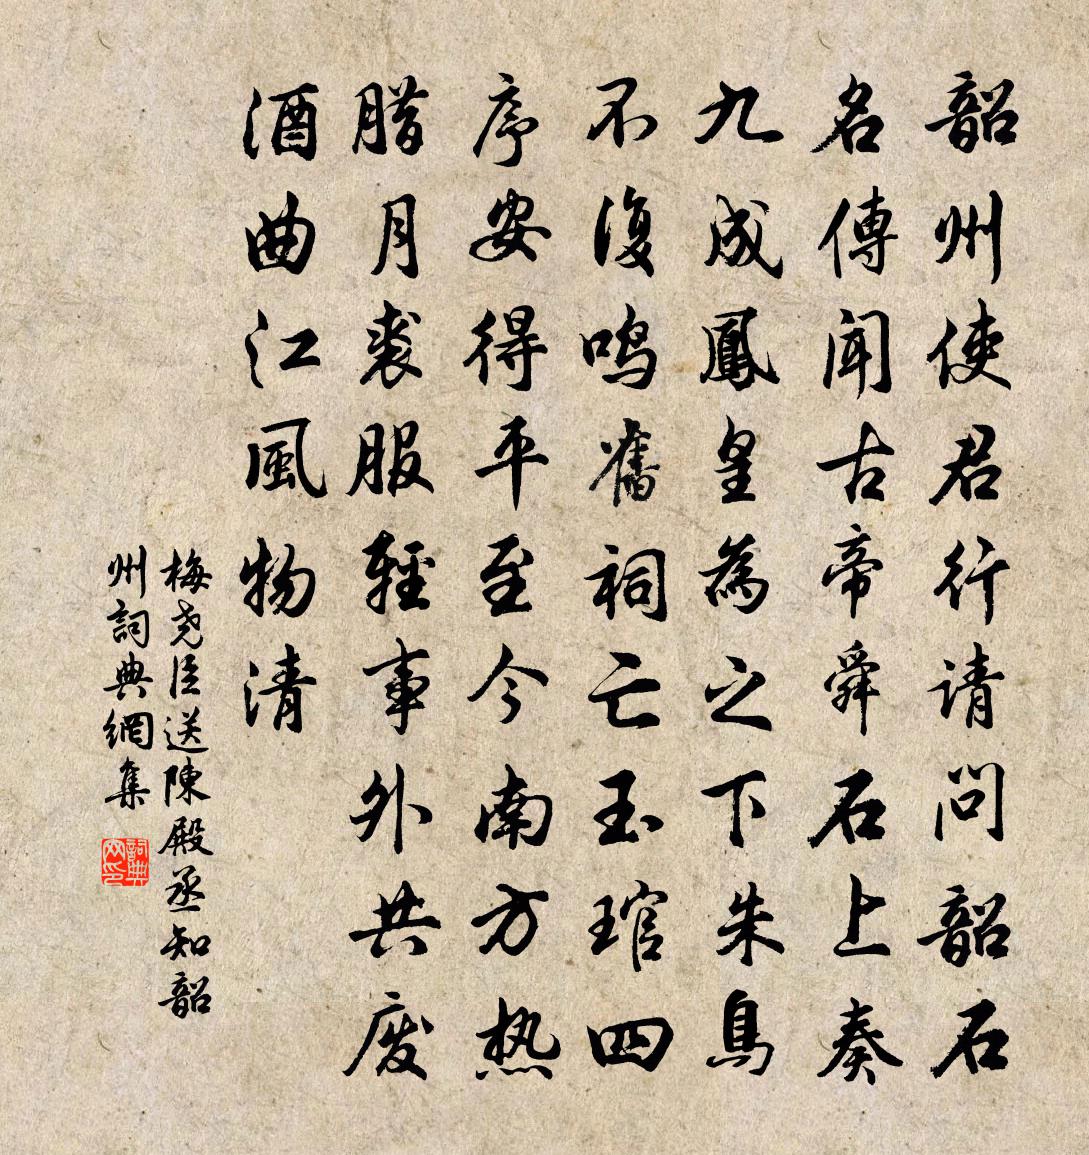 韶州使君行请问韶石
名傳闻古帝舜石上奏
九成鳳皇為之下朱鳥
不復鸣舊祠亡玉琯四
序安得平至今南方热
腊月裘服輕事外共废
酒曲江風物清
梅尧臣送陳殿丞知韶
州詞典網集
詞典网印